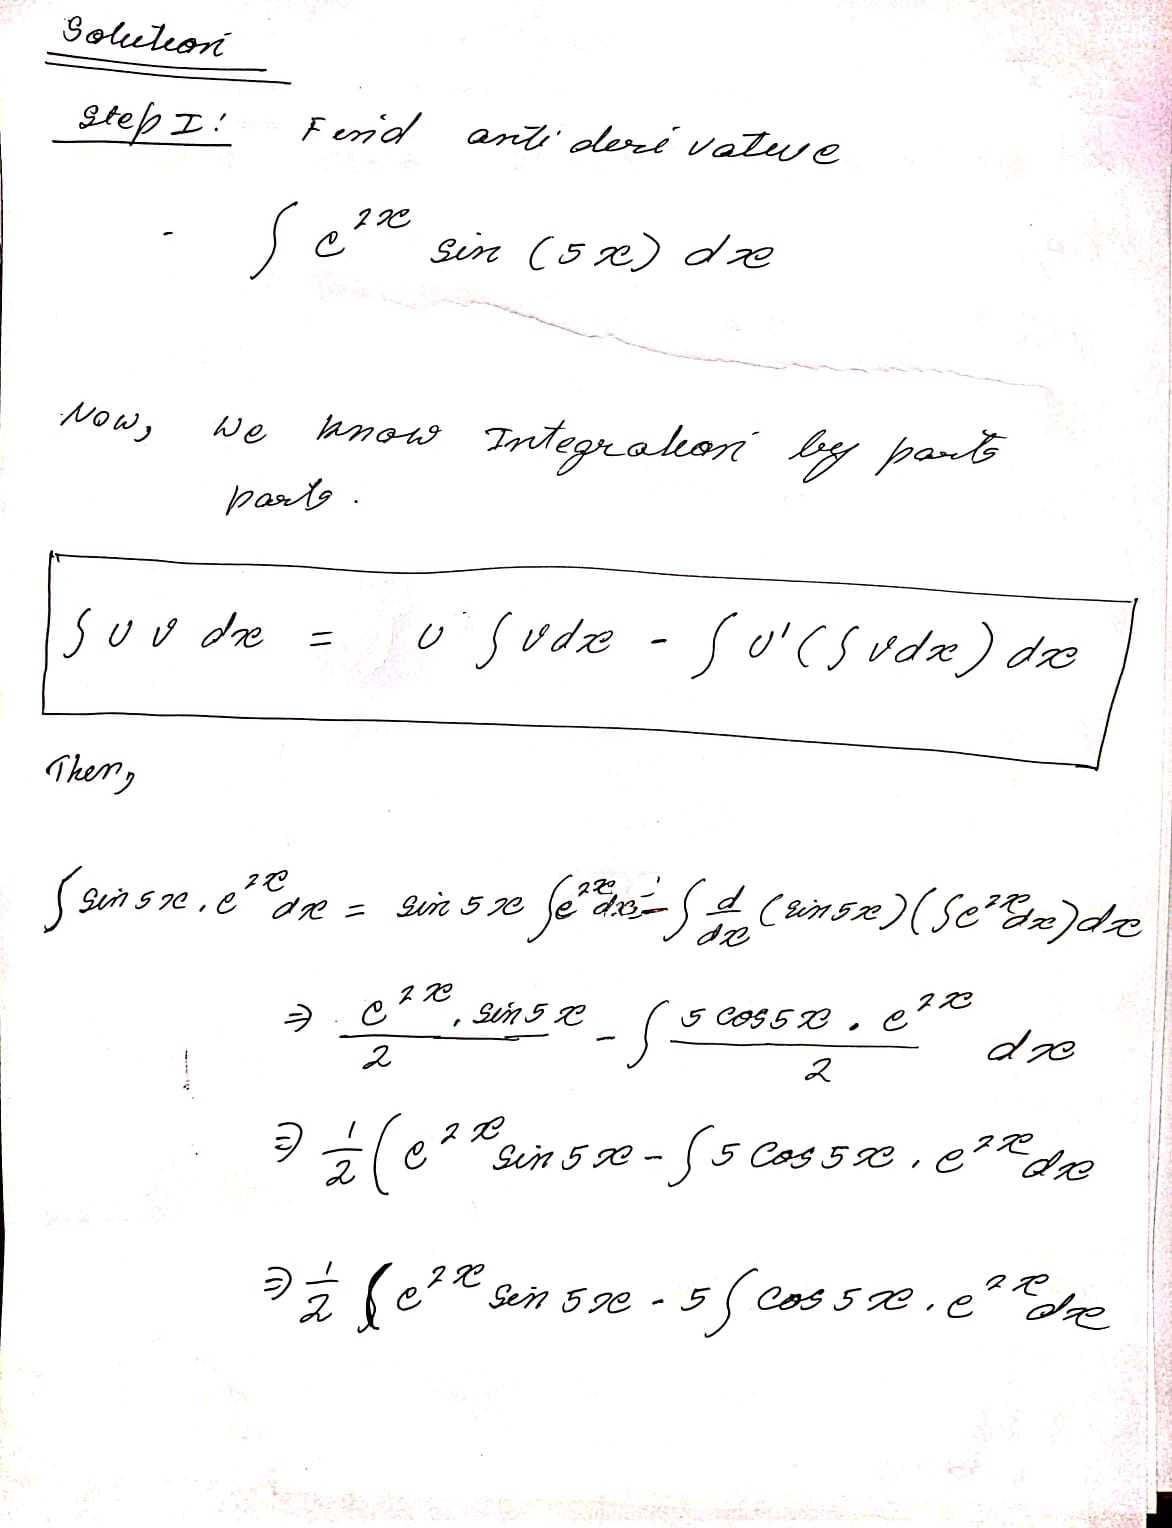 Solution
Step I: Find anti derivative
∫ e^{2x} sin (5x) dx
Now, we know Integration by parts
parts.
∫ u v dx = u ∫ v dx - ∫ u' (∫ v dx) dx
Then,
∫ sin 5x . e^{2x} dx = sin 5x ∫ e^{2x} dx - ∫ d/dx (sin 5x) (∫ e^{2x} dx) dx
⇒ e^{2x} . sin 5x / 2 - ∫ 5 cos 5x . e^{2x} / 2 dx
⇒ 1/2 ( e^{2x} sin 5x - ∫ 5 cos 5x . e^{2x} dx
⇒ 1/2 { e^{2x} sin 5x - 5 ∫ cos 5x . e^{2x} dx